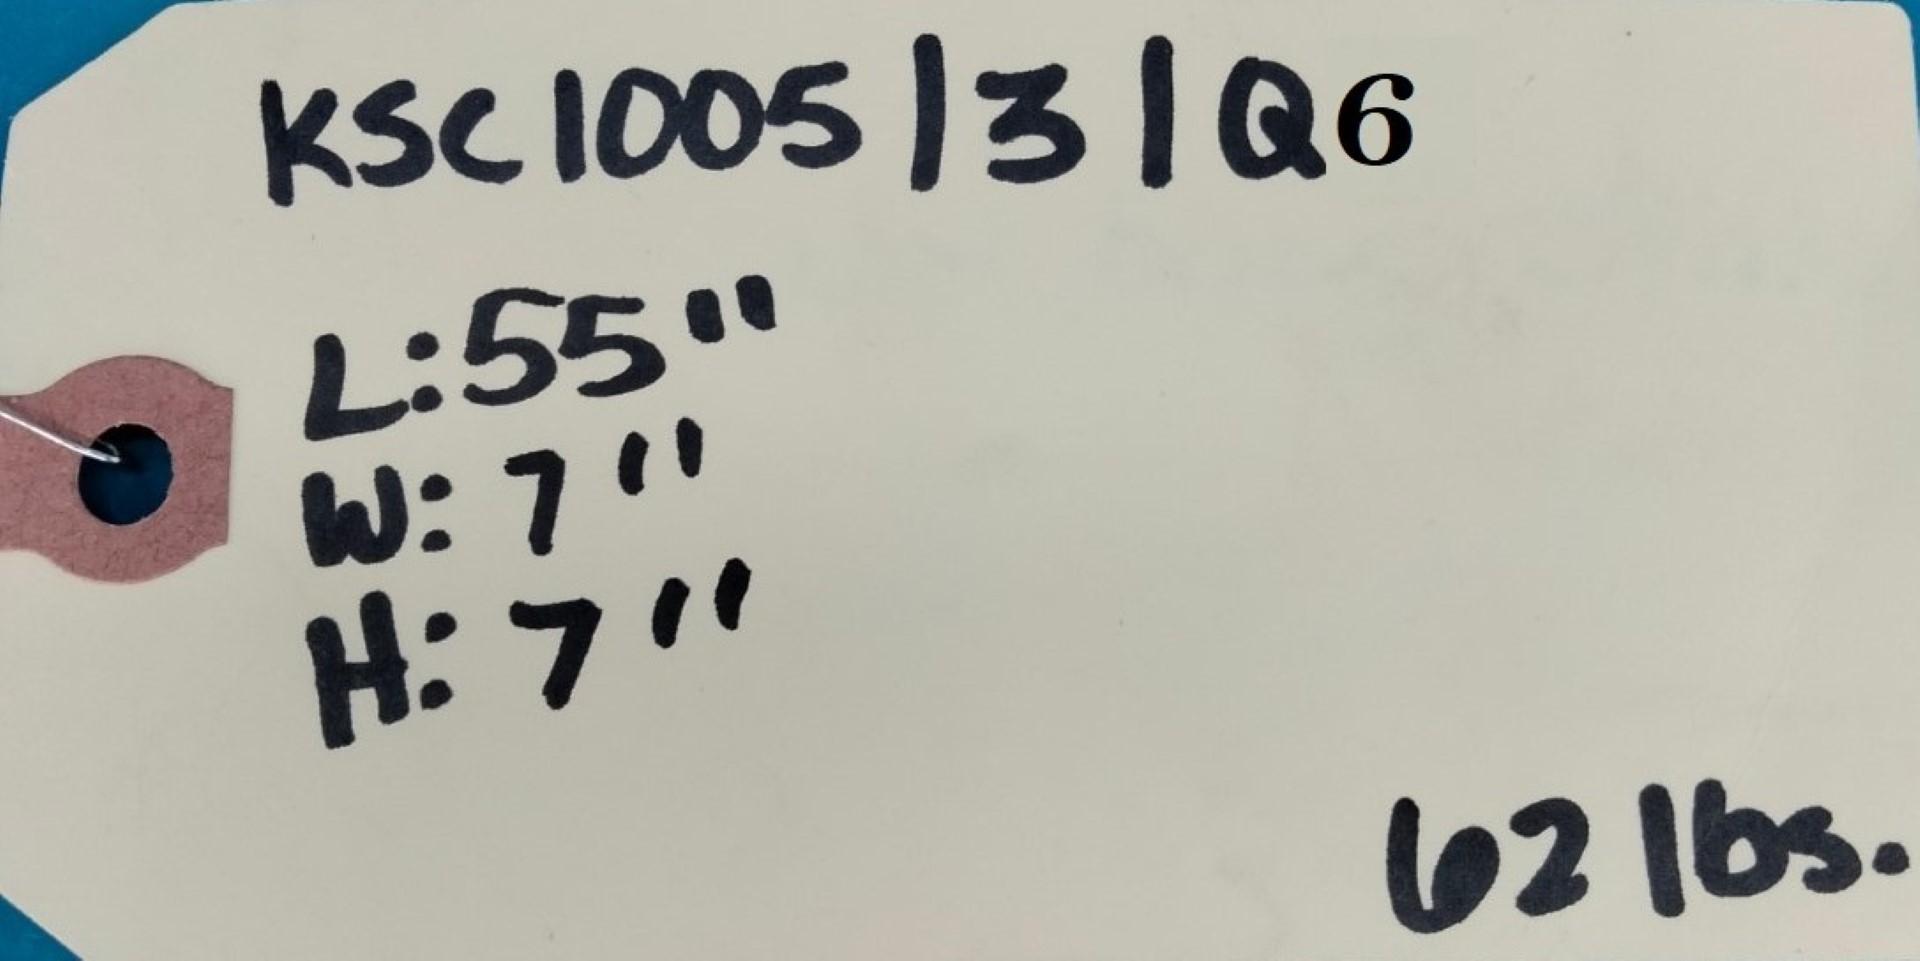 KSC1005|3|Q6
L:55"
W: 7"
H: 7"
62 lbs.